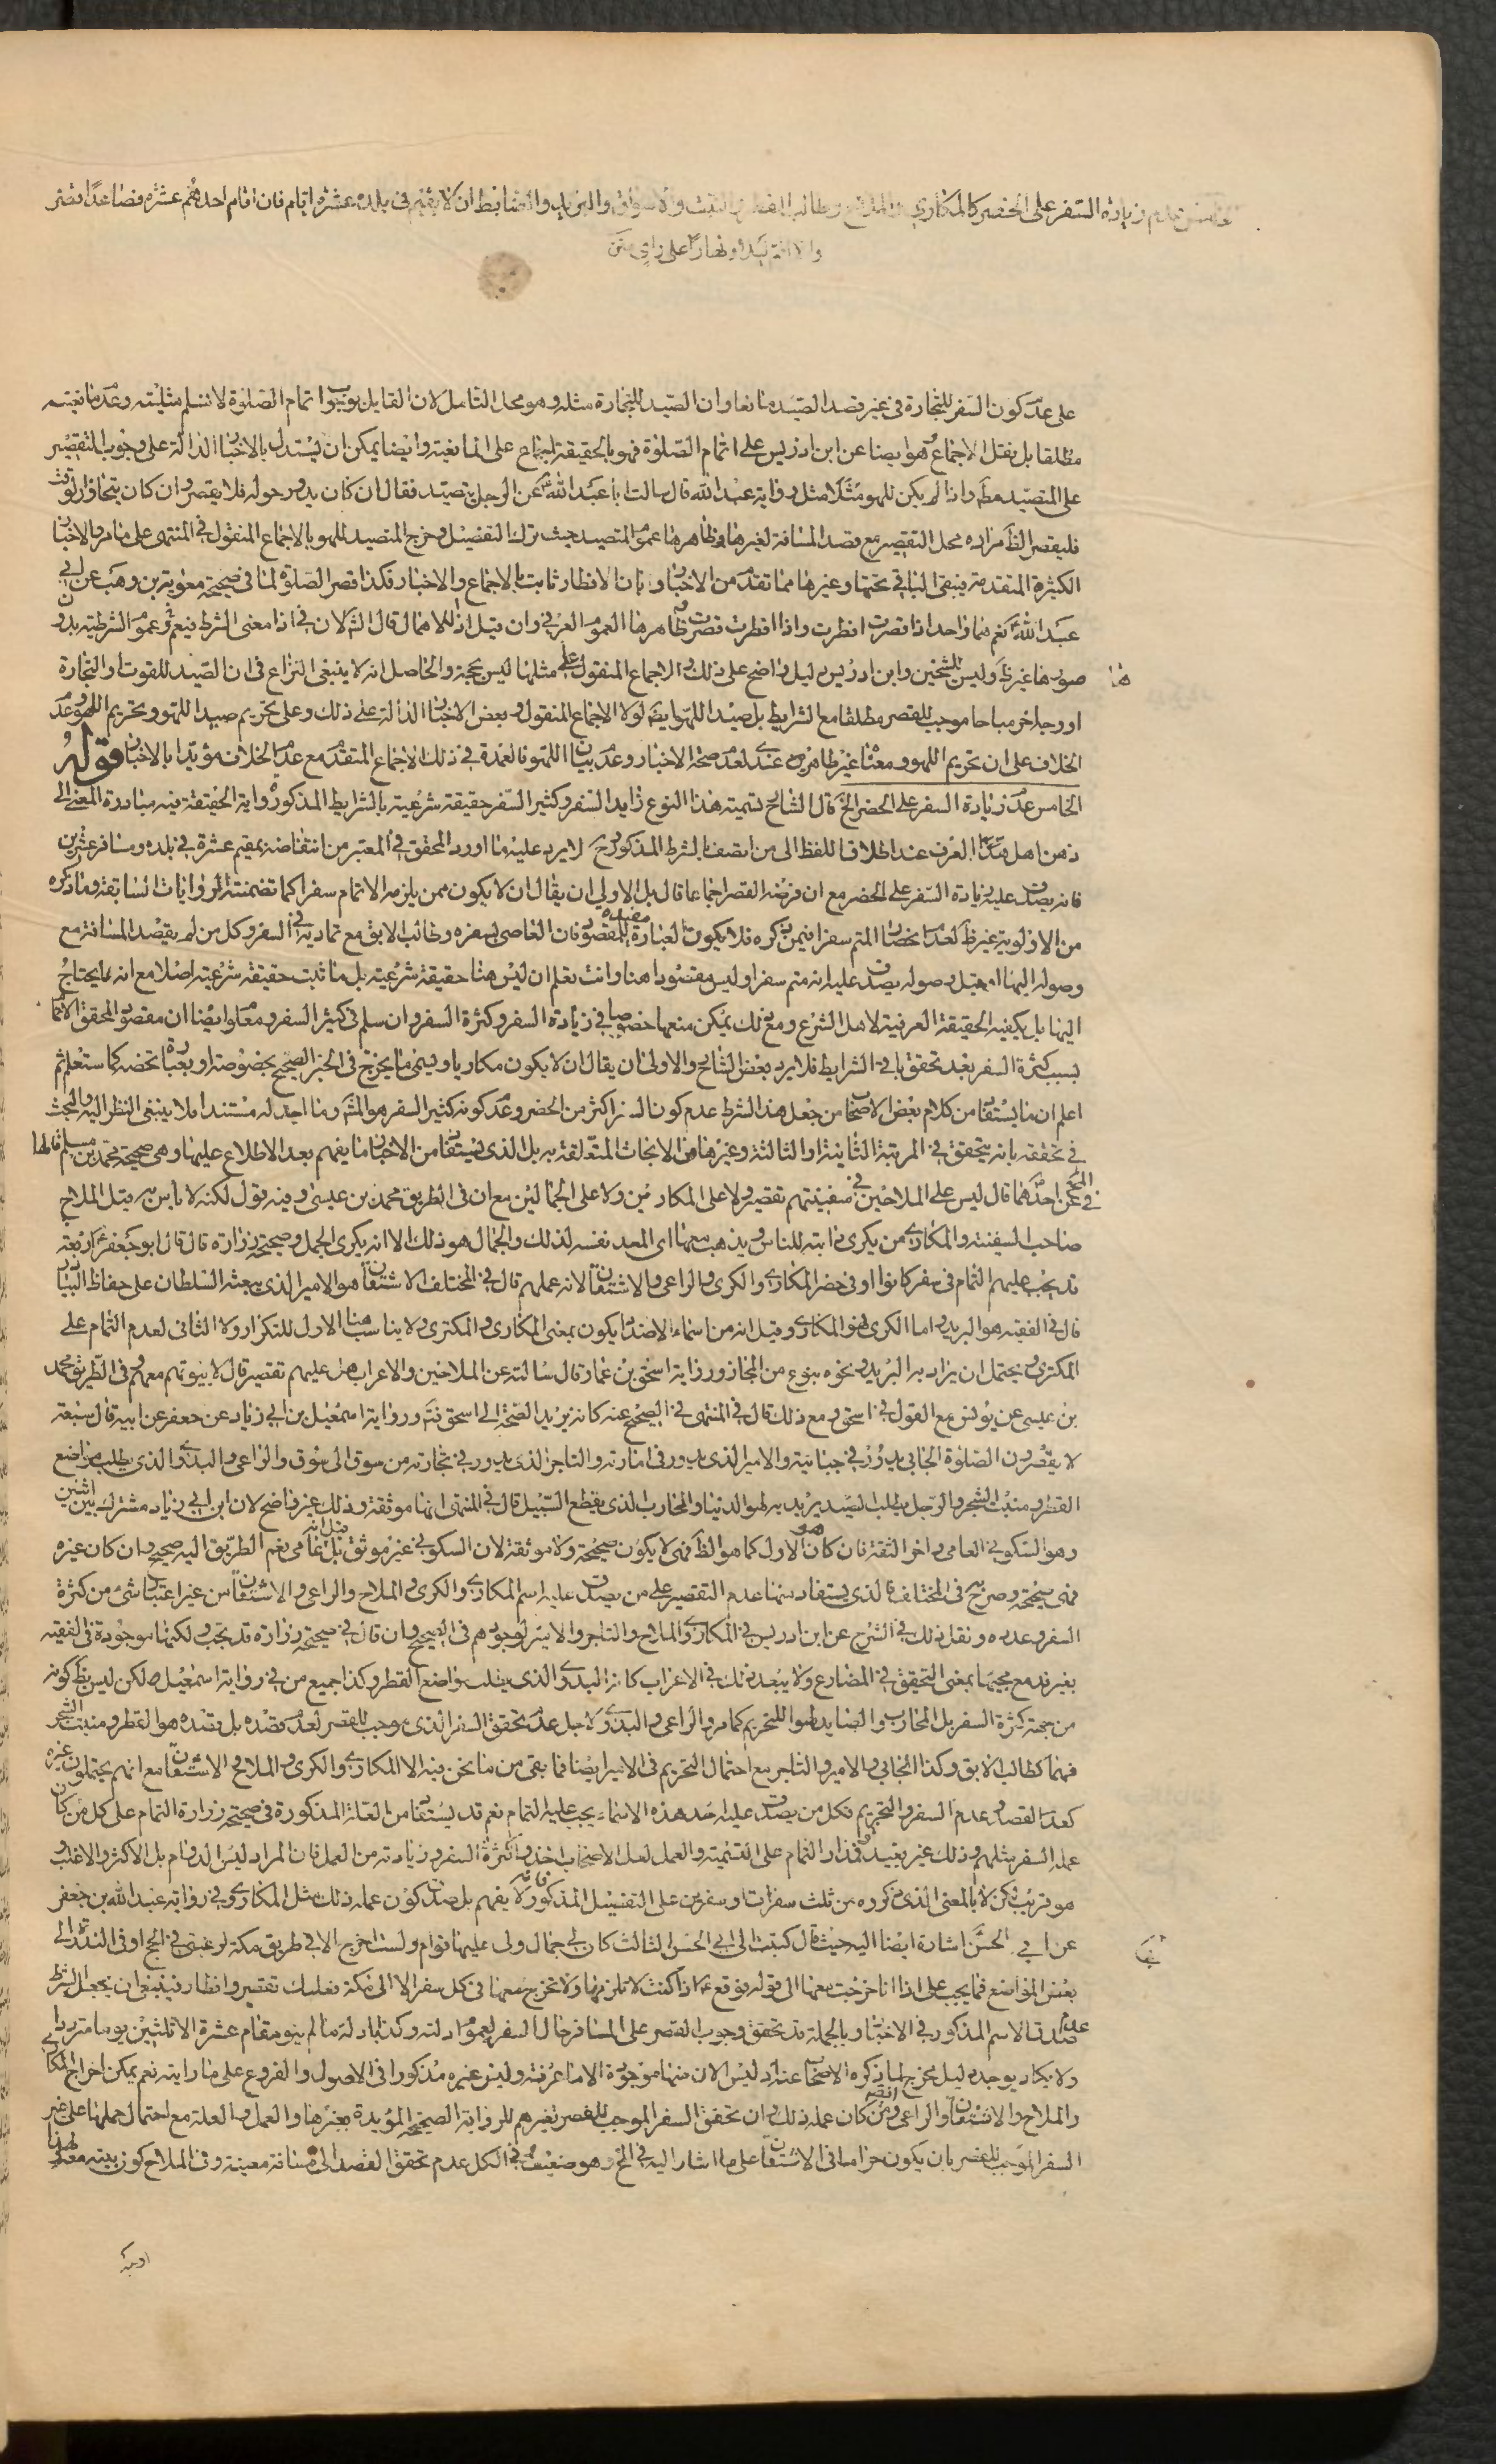 الخامس عدم زيادة السفر على الحضر كالمكاري والملاح وطالب القطر والنبت والاسواق والبريد والضابط ان لا يقيم في بلده عشرة ايام فان اقام احدهم عشرة فصاعدا قصر
والا اتم ليلا ونهارا على راي متن
على عدم كون السفر للتجارة في غير قصد الصيد مانعا وان الصيد للتجارة مثله وهو محل التامل لان القايل بوجوب اتمام الصلوة لا نسلم مثليته وعدم مانعيته
مطلقا بل بنقل الاجماع هو ايضا عن ابن ادريس على اتمام الصلوة فهو بالحقيقة اجماع على المانعية وايضا يمكن ان يستدل بالاخبار الدالة على وجوب التقصير
على المتصيد مطَ واذا لم يكن للهو مثلا مثل رواية عبد الله قال سالت ابا عبد الله عن الرجل يتصيد فقال ان كان يدور حوله فلا يقصر وان كان يتجاوز الوقت
فليقصر الظَ مراده محل التقصير مع قصد المسافة لغيرها وظاهرها عموم المتصيد حيث ترك التفضيل وخرج المتصيد للهو بالاجماع المنقول في المنتهى على ما مر والاخبار
الكثيرة المتقدمة ينبغى الباقي تحتها وغيرها مما تقدم من الاخبار وبان الافطار ثابت بالاجماع والاخبار فكذا قصر الصلوة لما في صحيحة معوية بن وهب عن ابي
عبد الله نعم هما واحد اذا قصرت افطرت واذا افطرت قصرت وظاهرها العموم العرفي وان قيل اذا للاهمال قال الَ لان في اذا معنى الشرط فيعم وعموم الشرطية بدون
صورها غير ظَ وليس للشيخين وابن ادريس دليل واضح على ذلك والاجماع المنقول على مثلها ليس بحجة والحاصل انه لا ينبغى النزاع في ان الصيد للقوت او التجارة
او وجه اخر مباحا موجب للقصر مطلقا مع الشرايط بل صيد اللهو ايضَ لولا الاجماع المنقول وبعض الاخبار الدالة على ذلك وعلى تحريم صيد اللهو وتحريم اللهو وعدم
الخلاف على ان تحريم اللهو ومعناه غير ظاهر عندي لعدم صحة الاخبار وعدم بيان اللهو فالعمدة في ذلك الاجماع المتقدم مع عدم الخلاف مؤيدا بالاخبار قوله
الخامس عدم زيادة السفر على الحضر الخ قال الشارح تسمية هذا النوع زايد السفر وكثير السفر حقيقة شرعية بالشرايط المذكورة واية الحقيقة فيه مبادرة المعنى الى
ذهن اهل هذا العرف عند اطلاق اللفظ الى من اتصف بالشرط المذكور وح لا يرد عليه ما اورد المحقق في المعتبر من انتقاضه بمقيم عشرة في بلده ومسافر عشرين
فانه يصدق عليه زيادة السفر على الحضر مع ان فرضه القصر اجماعا قال بل الاولى ان يقال ان لا يكون ممن يلزمه الاتمام سفرا كما تضمنته الروايات السابقة وما ذكره
من الاولوية غير ظَ لعدم انحصار المتم سفرا فيمن ذكره فلا يكون العبارة مفيدة للمقصود فان العاصى بسفره وطالب الابق مع تماديه في السفر وكل من لم يقصد المسافة مع
وصوله اليها او قبل وصوله يصدق عليه انه متم سفرا وليس مقصودا هنا وانت تعلم ان ليس هنا حقيقة شرعية بل ما ثبت حقيقة شرعية اصلا مع انه لا يحتاج
اليها بل يكفيه الحقيقة العرفية لاهل الشرع ومع ذلك يمكن منعها خصوصا في زيادة السفر وكثرة السفر وان سلم في كثير السفر ومعلوم ايضا ان مقصود المحقق الاتمام
بسبب كثرة السفر بعد تحقق باقي الشرايط فلا يرد بعض الشارح والاولى ان يقال ان لا يكون مكاريا ويسمى ما يخرج في الخبر الصحيح بخصوصه او بعبارة تخصه كما ستعلم ثم
اعلم ان ما يستفاد من كلام بعض الاصحاب من جعل هذا الشرط عدم كون السفر اكثر من الحضر وعدم كونه كثير السفر هو المشَ وما اجد له مستندا فلا ينبغى النظر اليه والبحث
في تحققه بانه يتحقق في المرتبة الثانية او الثالثة وغيرها من الابحاث المتعلقة به بل الذي يستفاد من الاخبار ما يفهم بعد الاطلاع عليها وهى صحيحة محمد بن مسلم قالها
في الصحيح عن احدهما قال ليس على الملاحين في سفينتهم تقصير ولا على المكارين ولا على الجمالين مع ان في الطريق محمد بن عيسى وفيه قول لكنه لا باس به قيل الملاح
صاحب السفينة والمكاري من يكرى دابته للناس ويذهب معها اى المعد نفسه لذلك والجمال هو ذلك الا انه يكرى الجمل وصحيحة زرارة قال قال ابو جعفر اربعة
قد يجب عليهم التمام في سفر كانوا او في حضر المكاري والكري والراعي والاشتقان لانه عملهم قال في المختلف الاشتقان هو الامير الذي يبعثه السلطان على حفاظ البيادر
قال في الفقيه هو البريد واما الكري فهو المكاري وقيل انه من اسماء الاضداد يكون بمعنى المكاري والمكتري ولا يناسب هنا الاول للتكرار ولا الثانى لعدم التمام على
المكتري ويحتمل ان يزاد به البريد ونحوه بنوع من المجاز ورواية اسحق بن عمار قال سالته عن الملاحين والاعراب هل عليهم تقصير قال لا بيوتهم معهم وفي الطريق محمد
بن عيسى عن يونس مع القول في اسحق ومع ذلك قال في المنتهى في الصحيح عنه كانه يريد الصحة الى اسحق فتَ ورواية اسمعيل بن ابي زياد عن جعفر عن ابيه قال سبعة
لا يقصرون الصلوة الجابي يدور في جبايته والامير الذي يدور في امارته والتاجر الذي يدور في تجارته من سوق الى سوق والراعي والبدوي الذي يطلب مواضع
القطر ومنبت الشجر والرجل يطلب الصيد يريد به لهو الدنيا والمحارب الذي يقطع السبيل قال في المنتهى انها موثقة وذلك غير واضح لان ابن ابي زياد مشترك بين اثنين
وهو السكوني العامي واخر الثقة فان كان هو الاول كما هو الظَ فهي لا يكون صحيحة ولا موثقة لان السكوني غير موثق بل قيل انه عامي نعم الطريق اليه صحيح وان كان غيره
فهي صحيحة وصرح به في المختلف فالذي يستفاد منها عدم التقصير على من يصدق عليه اسم المكاري والكري والملاح والراعي والاشتقان من غير اعتبار شيء من كثرة
السفر وعدده ونقل ذلك في الشرح عن ابن ادريس في المكاري والملاح والتاجر والامير لوجودهم في الصحيح وان قال في صحيحة زرارة قد يجب ولكنها موجودة في الفقيه
بغير قد مع مجيئها بمعنى التحقيق في المضارع ولا يبعد ذلك في الاعراب كانه البدوي الذي يطلب مواضع القطر وكذا جميع من في رواية اسمعيل لكن ليس بظَ كونه
من جهة كثرة السفر بل المحارب والصايد لهوا للتحريم كما مر والراعي والبدوي لاجل عدم تحقق السفر الذي موجب للقصر لعدم قصده بل قصده هو القطر ومنبت الشجر
فهما كطالب الابق وكذا الجابي والامير والتاجر مع احتمال التحريم في الامير ايضا فما بقى من ما نحن فيه الا المكاري والكري والملاح والاشتقان مع انهم يحتملون غيره
كعدم القصد وعدم السفر والتحريم فكل من يصدق عليه احد هذه الاسماء يجب عليه التمام نعم قد يستفاد من العلة المذكورة في صحيحة زرارة التمام على كل من كان
عمله السفر مثلهم وذلك غير بعيد فمدار التمام على التسمية والعمل لعل الاصحاب اخذوا كثرة السفر وزيادته من العمل فان المراد ليس الدوام بل الاكثر والاغلب و
هو قريب لكن لا بالمعنى الذي ذكروه من ثلث سفرات او سفرين على التفصيل المذكور فانه لا يفهم بل صدق كون عمله ذلك مثل المكاري وفي رواية عبد الله بن جعفر
عن ابي الحسن اشارة ايضا اليه حيث قال كتبت الى ابي الحسن الثالث كان لي جمال ولى عليها قوام ولست اخرج الا في طريق مكة لرغبتي في الحج او في الندرة الى
بعض المواضع فما يجب على اذا انا خرجت معها الى قوله فوقع ع اذا كنت لا تلزمها ولا تخرج معها في كل سفر الا الى مكة فعليك تقصير وافطار فينبغى ان يجعل الشرط
عدم صدق الاسم المذكور في الاخبار وبالجملة قد تحقق وجوب القصر على المسافر حال السفر لعموم ادلته وكذا بادلة ما لم ينو مقام عشرة الا ثلثين يوما مترددا
ولا يكاد يوجد دليل مخرج لما ذكره الاصحاب عندك ليس الان منها موجودة الا ما عرفته وليس غيره مذكورا في الاصول والفروع على ما رايته نعم يمكن اخراج المكاري
والملاح والاشتقان والراعي ومن كان عمله ذلك وان تحقق السفر الموجب للقصر بغيرهم للرواية الصحيحة المؤيدة بغيرها والعمل والعلة مع احتمال حملها على غير
السفر الموجب للقصر بان يكون حراما في الاشتقان على ما اشار اليه في الخ وهو ضعيف في الكل عدم تحقق القصد الى مسافة معينة وفي الملاح كون بيته معه لهذا
او بيته